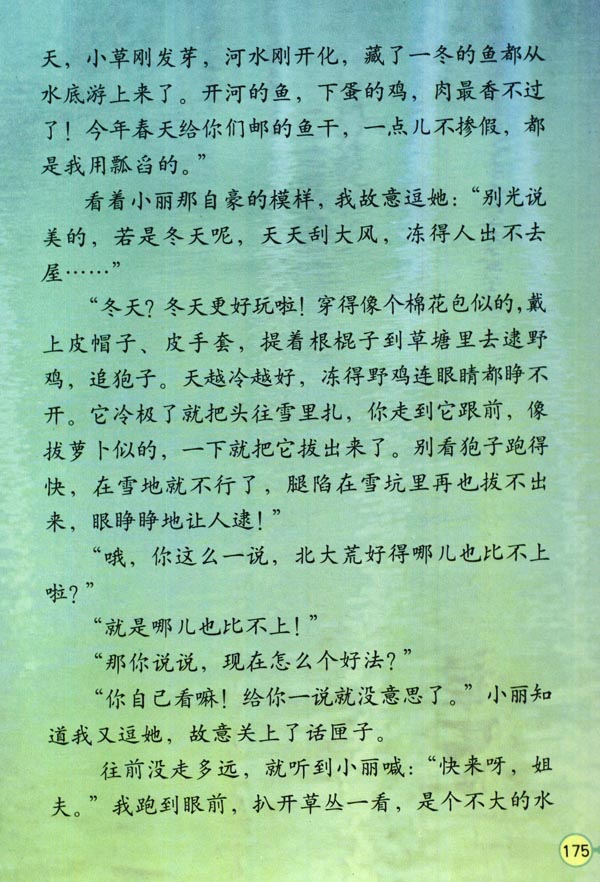 天，小草刚发芽，河水刚开化，藏了一冬的鱼都从
水底游上来了。开河的鱼，下蛋的鸡，肉最香不过
了！今年春天给你们邮的鱼干，一点儿不掺假，都
是我用瓢舀的。”
看着小丽那自豪的模样，我故意逗她：“别光说
美的，若是冬天呢，天天刮大风，冻得人出不去
屋……”
“冬天？冬天更好玩啦！穿得像个棉花包似的，戴
上皮帽子、皮手套，提着根棍子到草塘里去逮野
鸡，追狍子。天越冷越好，冻得野鸡连眼睛都睁不
开。它冷极了就把头往雪里扎，你走到它跟前，像
拔萝卜似的，一下就把它拔出来了。别看狍子跑得
快，在雪地就不行了，腿陷在雪坑里再也拔不出
来，眼睁睁地让人逮！”
“哦，你这么一说，北大荒好得哪儿也比不上
啦？”
“就是哪儿也比不上！”
“那你说说，现在怎么个好法？”
“你自己看嘛！给你一说就没意思了。”小丽知
道我又逗她，故意关上了话匣子。
往前没走多远，就听到小丽喊：“快来呀，姐
夫。”我跑到眼前，扒开草丛一看，是个不大的水
175